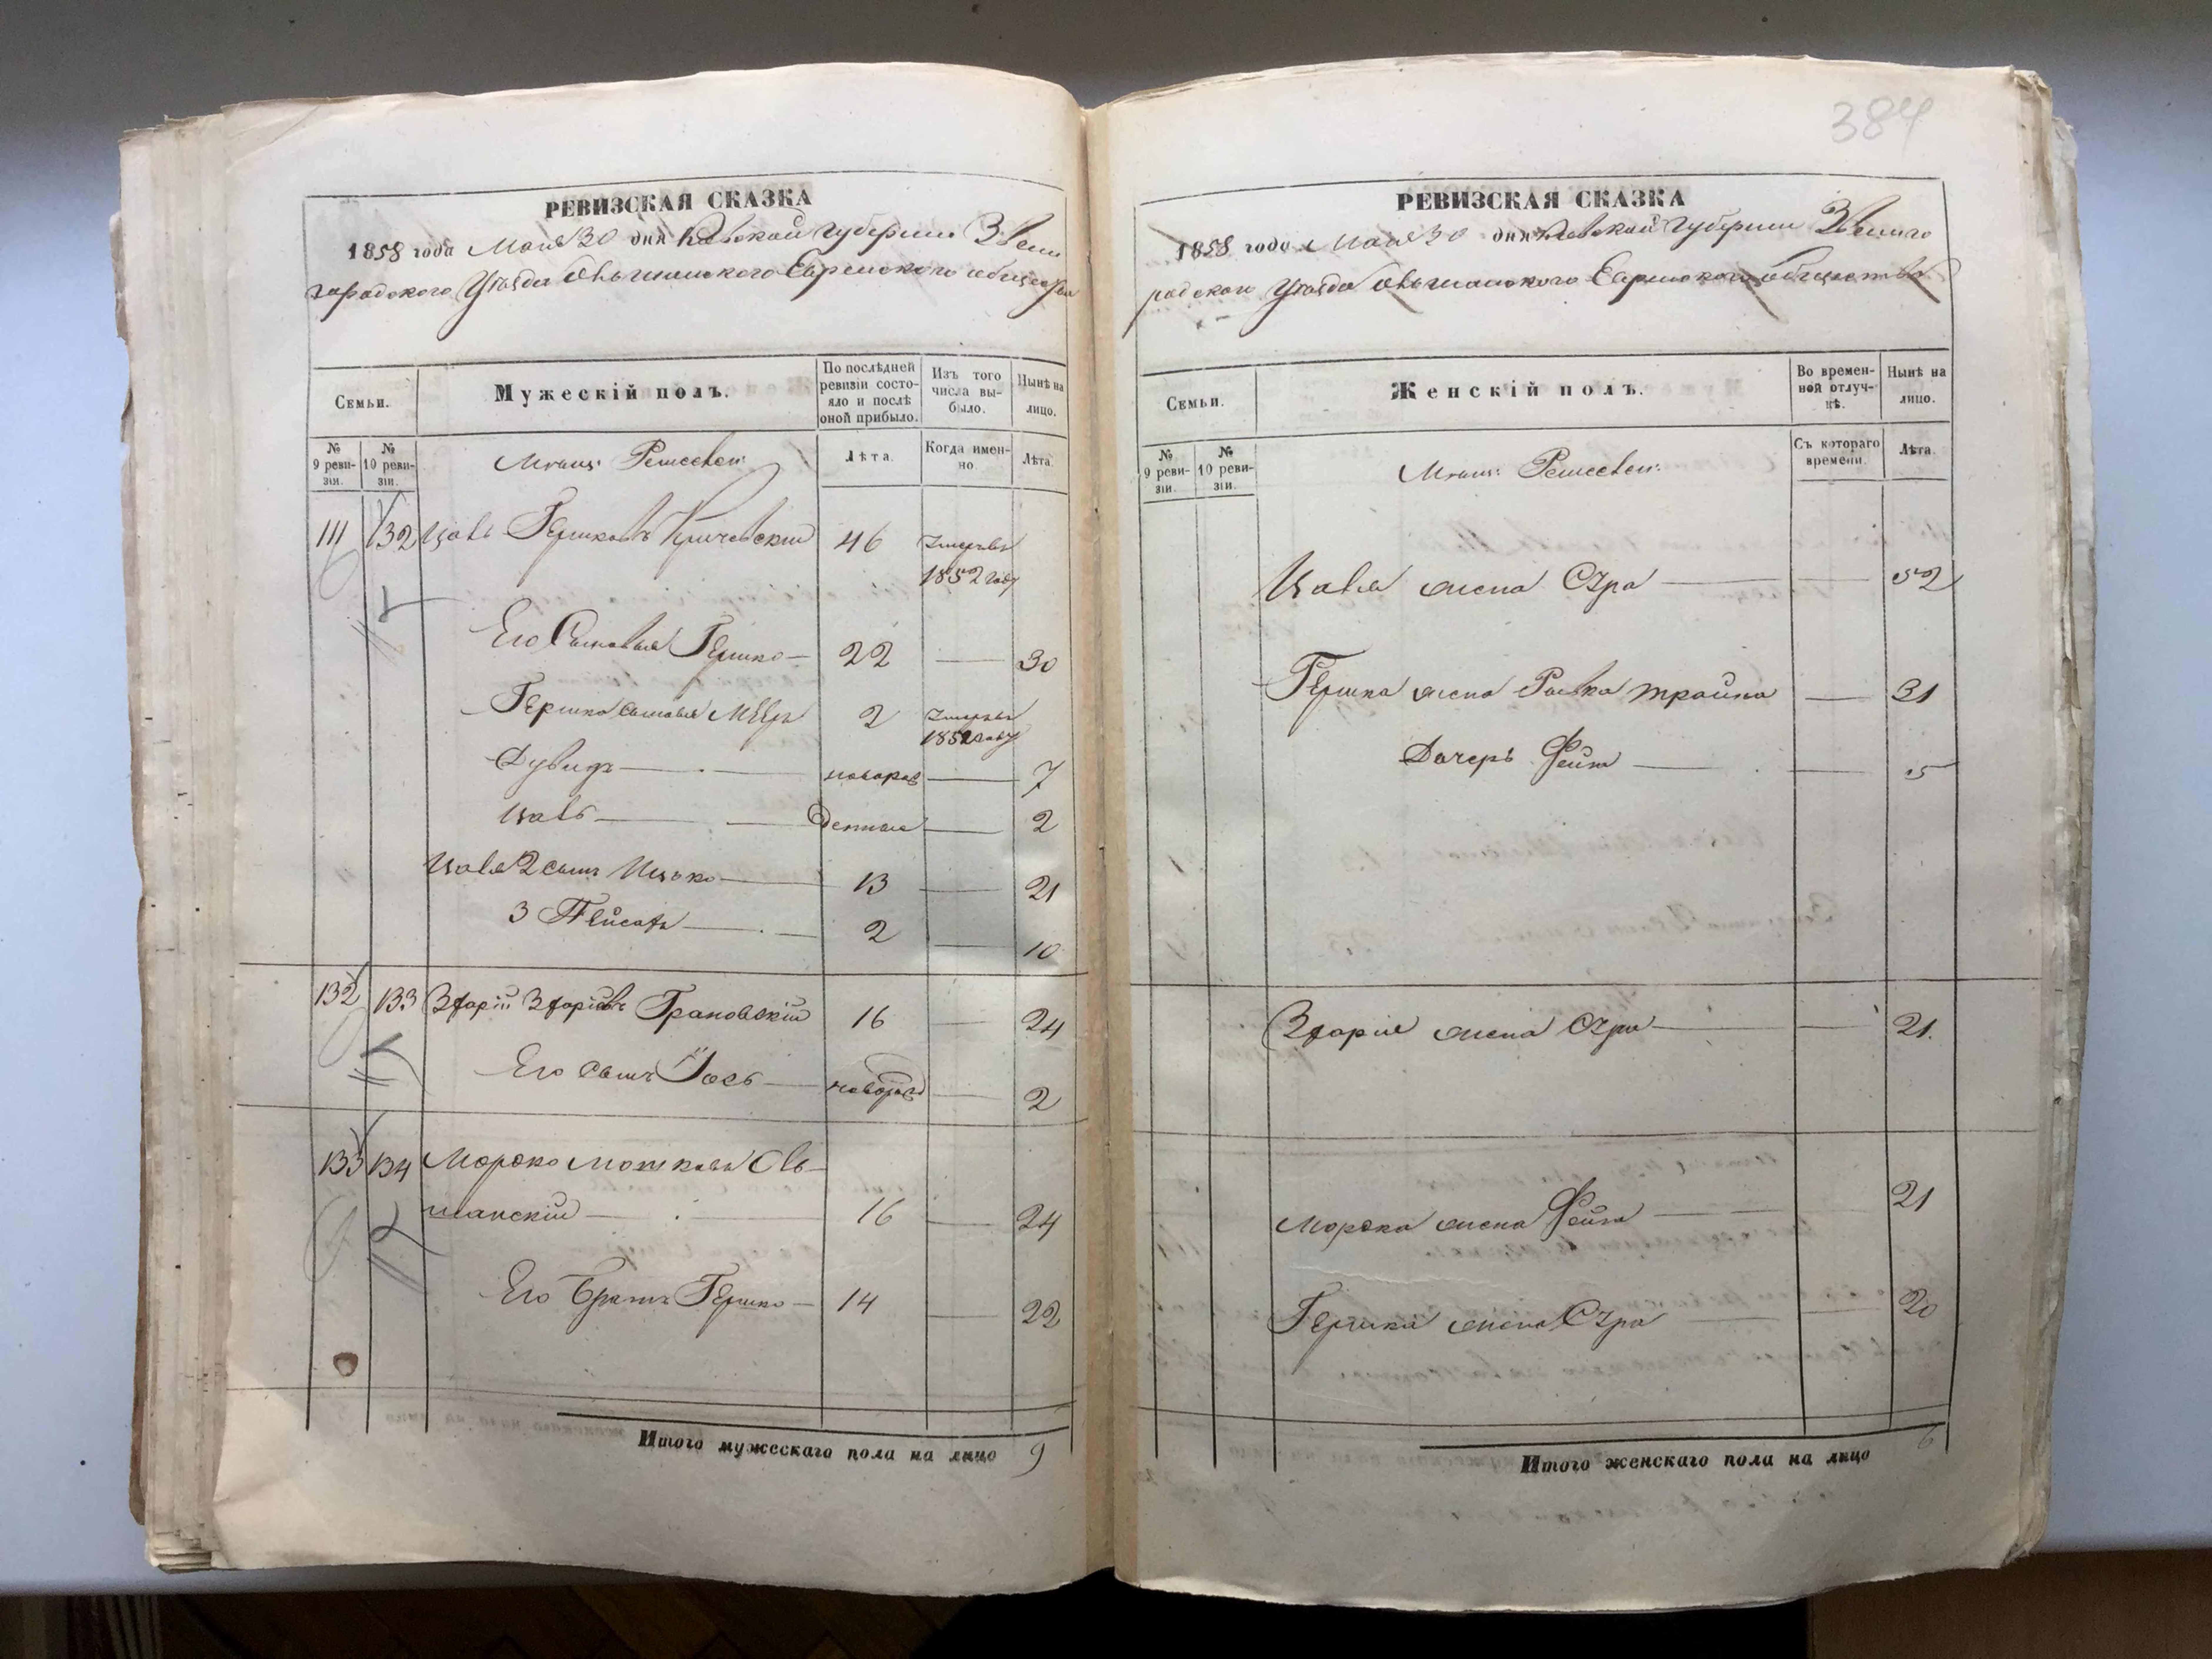 384
РЕВИЗСКАЯ СКАЗКА
1858 года Мая 30 дня Киевской губернии Звени
городского Уѣзда Ольшанского Еврейского общества
Семьи.
Мужескій полъ.
По послѣдней ревизіи состояло и послѣ оной прибыло.
Изъ того числа выбыло.
Нынѣ на лицо.
№ 9 ревизіи.
№ 10 ревизіи.
Лѣта.
Когда именно.
Лѣта.
111 132 Цаль Гершковъ Кричевскій 46 Умеръ въ 1852 году
Его Сыновья Гершко 22 — 30
Гершка сыновья Меер 2 Умеръ въ 1852 году
Дувидъ — новорож — 7
Цаль — денные — 2
Цаля 2 сынъ Ицько — 13 — 21
3 Пейсахъ — 2 — 10
132 133 Зхарій Зхаріовъ Грановскій 16 — 24
Его сынъ Іось — новорож — 2
133 134 Мордко Мошковъ Оль-
шанскій — 16 — 24
Его Братъ Гершко — 14 — 22
Итого мужескаго пола на лицо 9
РЕВИЗСКАЯ СКАЗКА
1858 года Мая 30 дня Киевской Губернии Звениго
родского Уѣзда Ольшанского Еврейского общества
Семьи.
Женскій полъ.
Во временной отлучкѣ.
Нынѣ на лицо.
№ 9 ревизіи.
№ 10 ревизіи.
Съ котораго времени.
Лѣта.
Цаля жена Сура — 52
Гершка жена Ривка Трайна — 31
Дочерь Фейга — 5
Зхарія жена Сура — 21.
Мордка жена Фейга — 21
Гершка жена Сура — 20
Итого женскаго пола на лицо 6